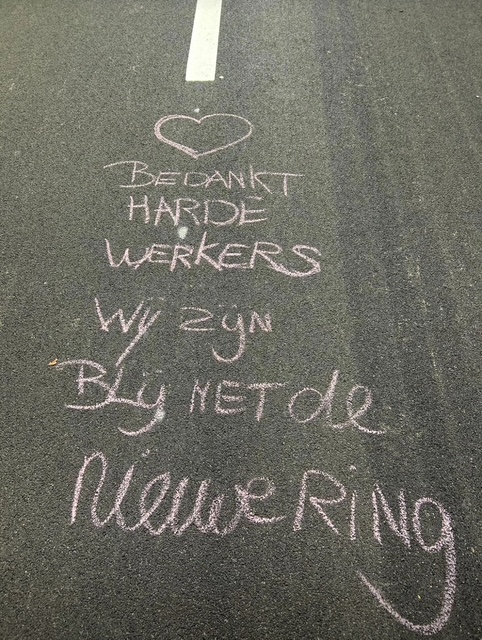 BEDANKT
HARDE
WERKERS
Wij zijn
BLij MET de
Nieuwe RING